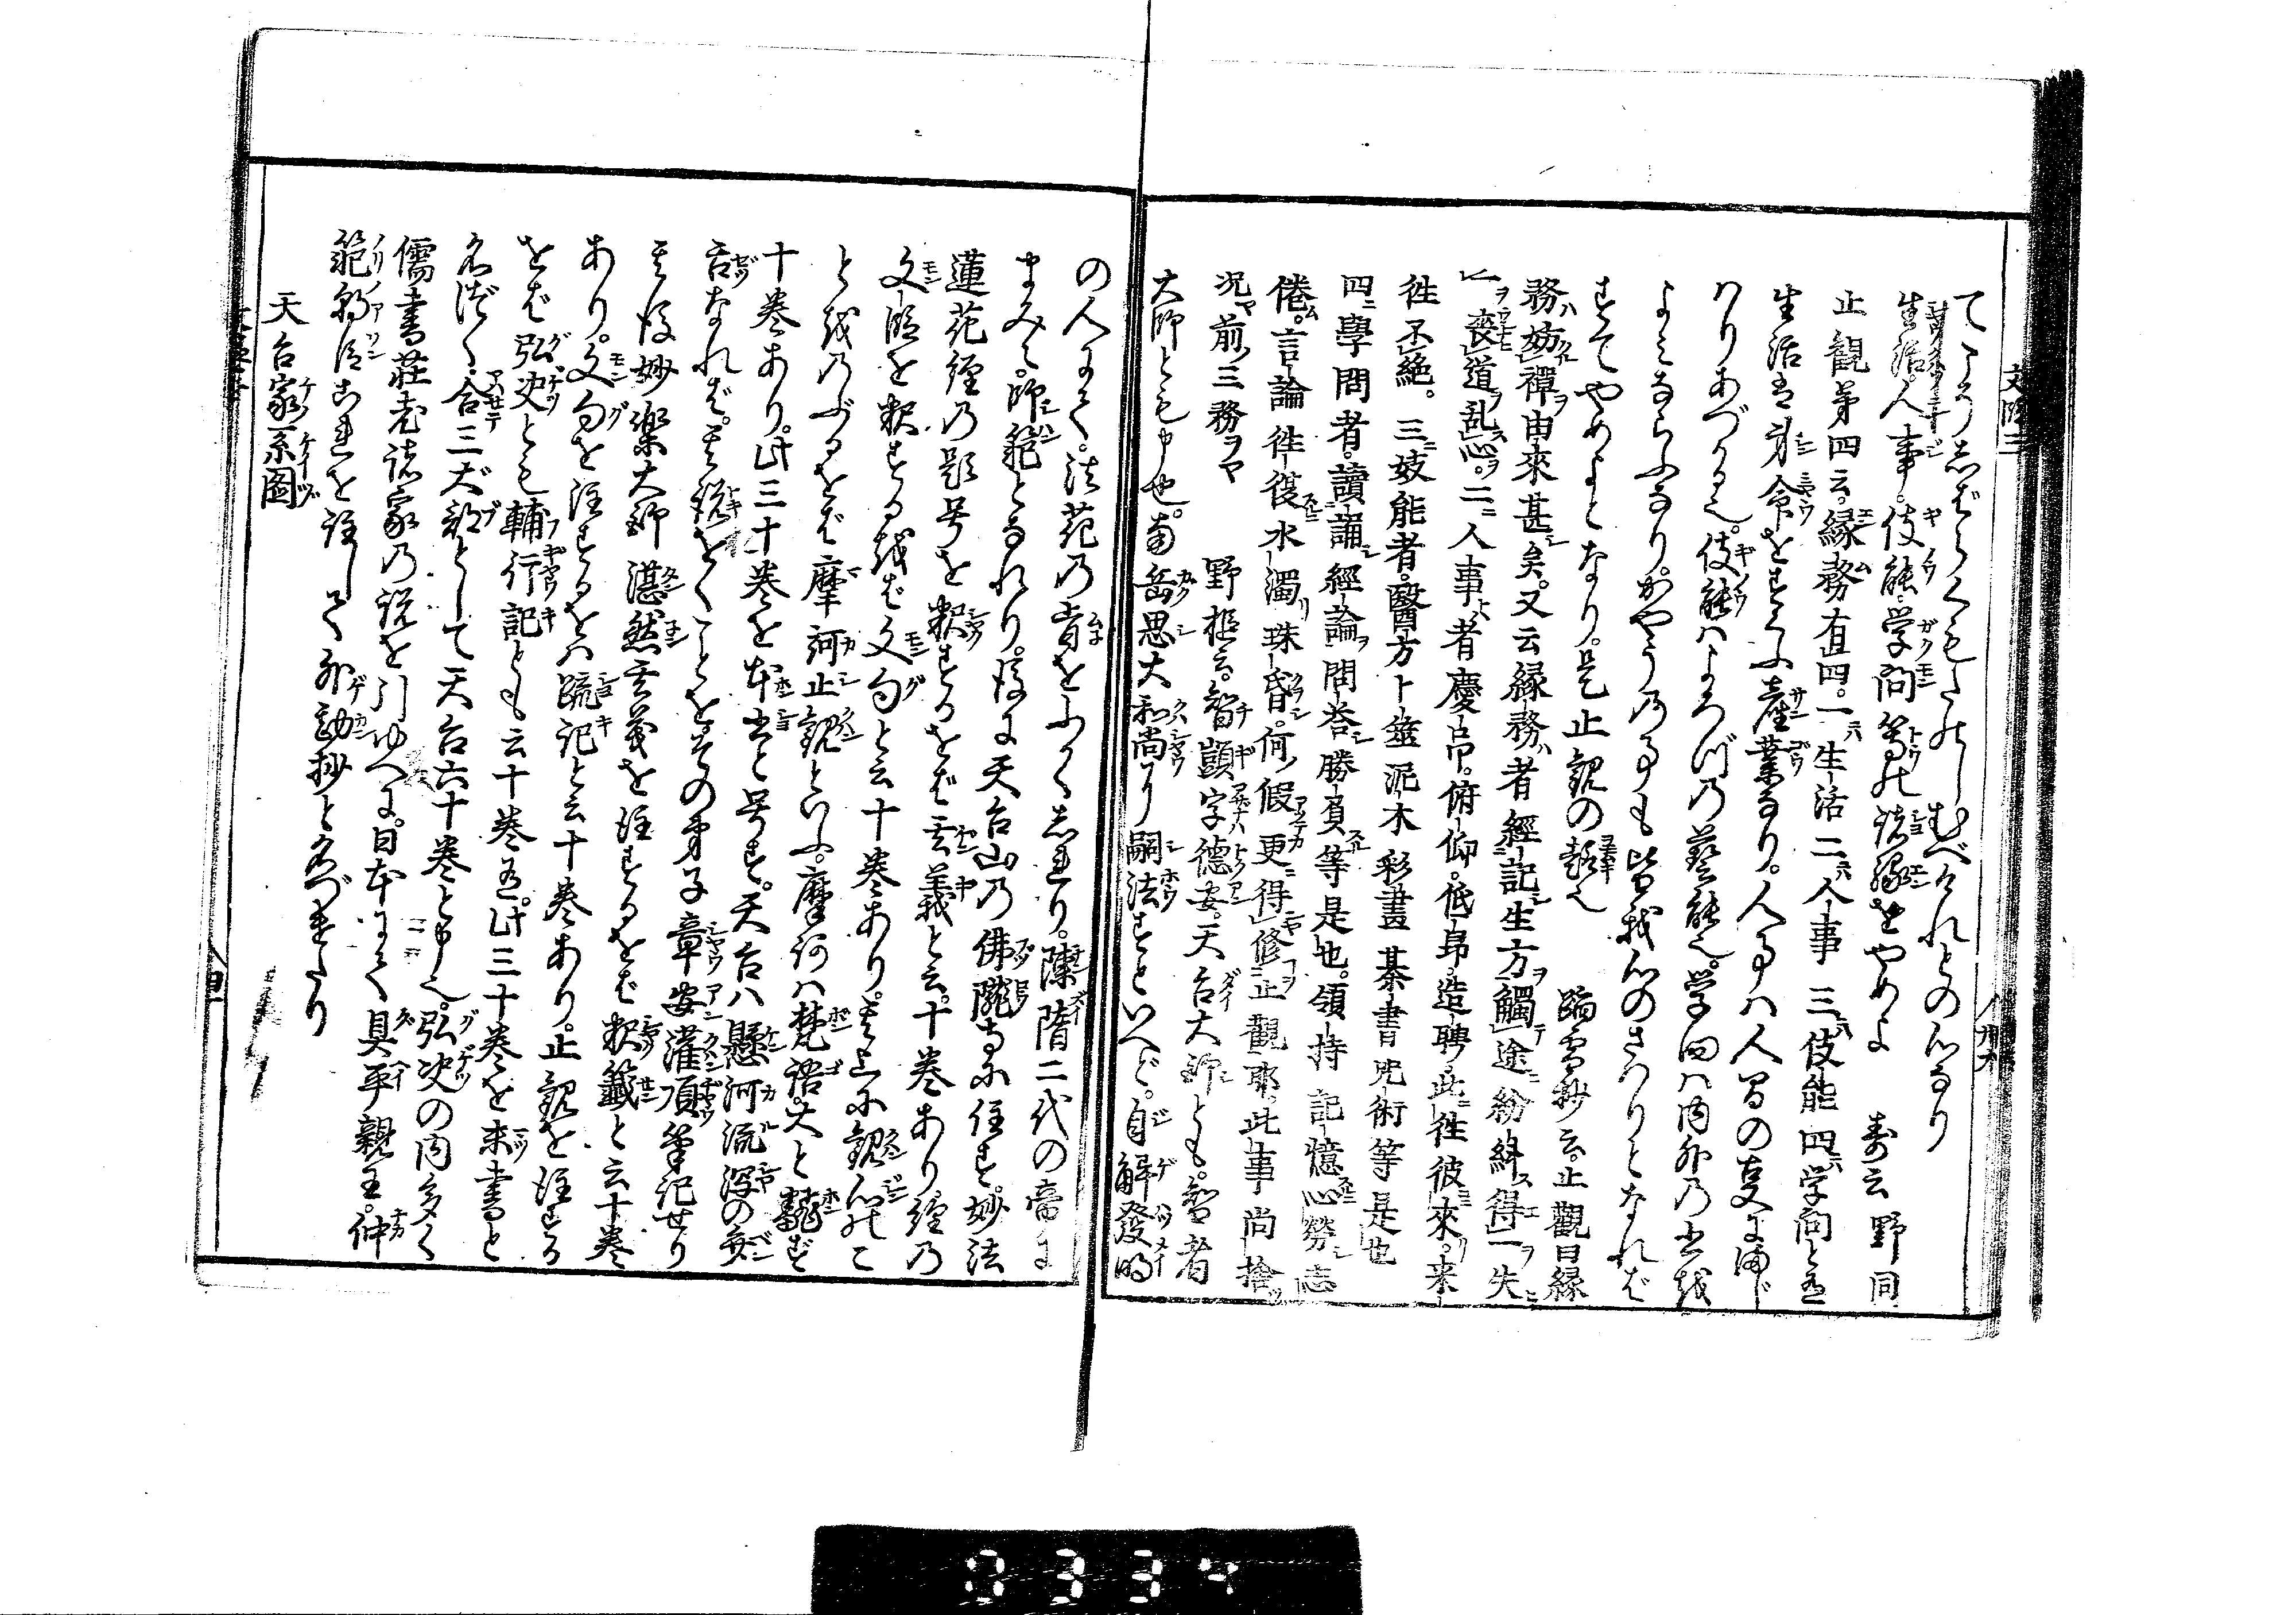 てこそしばらくもたのしむべけれとの心なり
生活人事。伎能学問等の諸縁をやめよ　寿云野同
止観第四云。縁務有四。一生活二人事三伎能四学問と在
生活は身命をすくふ産業なり。人事は人間の交にまじ
はりあづかる也。伎能はよろづの藝能也。学問は内外の書を
よみならふなり。かやうの事も皆我心のさはりとなれば
すてやめよとなり。是止観の趣也　踏雪抄云。止觀曰縁
務妨禪由來甚矣。又云縁務者經記生方觸途紛糾得一失
一喪道乱心。二人事者慶弔。俯仰。低昂造聘此往彼來。来
往不絶。三妓能者。醫方卜筮泥木彩畫棊書呪術等是也
四學問者。讀誦經論問答勝負等是也。領持記憶心勞志
倦。言論往復水濁珠昏。何假更得修正觀耶。此事尚捨
况前三務ヲヤ　野槌云。智顗字德安。天台大師とも。智者
大師とも申也。南岳思大和尚より嗣法すといへど。自解發明
の人にて。法花の旨をふかくしれり。陳隋二代の帝に
まみえ。師範となれり。後に天台山の佛隴寺に住す。妙法
蓮花經の題号を釈するをば玄義と云。十巻あり經の
文段を釈するをば文句と云十巻あり。其上に観心のこ
とをのぶるをば摩訶止観といふ。摩訶は梵語。大と翻ず
十巻あり。此三十巻を本書と号す。天台ハ懸河流瀉の弁
舌なれば。其説をくことを。その弟子章安灌頂筆記せり
其後妙楽大師湛然玄義を注するをば釈籤と云十巻
あり。文句を注するをハ疏記と云十巻あり。止観を注する
をば弘决とも輔行記とも云十巻有。此三十巻を末書と
名づく。合三大部として天台六十巻と申也。弘决の内多く
儒書荘老諸家の説を引ゆへに。日本にて具平親王。仲
範朝臣これを注して外勘抄と名づけたり
天台家系圖